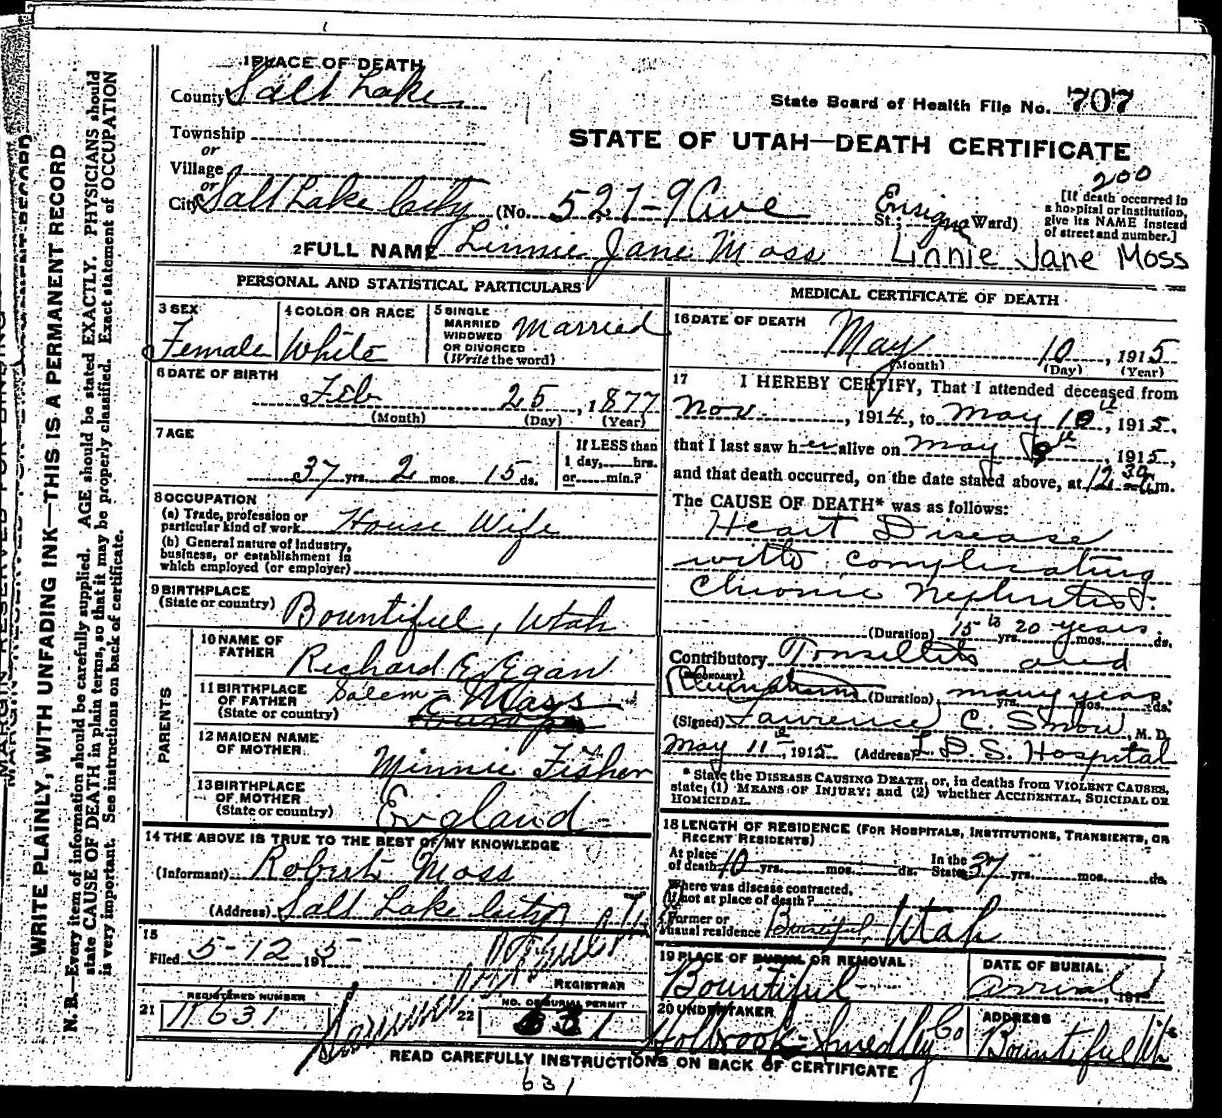 1 PLACE OF DEATH
County Salt Lake
State Board of Health File No. 707
Township
or
Village
or
City Salt Lake City (No. 527-9 Ave St.; Ensign Ward)
STATE OF UTAH—DEATH CERTIFICATE
200
[If death occurred in
a hospital or institution,
give its NAME instead
of street and number.]
2 FULL NAME Linnie Jane Moss Linnie Jane Moss
PERSONAL AND STATISTICAL PARTICULARS
3 SEX
Female
4 COLOR OR RACE
White
5 SINGLE
MARRIED
WIDOWED
OR DIVORCED
(Write the word)
Married
6 DATE OF BIRTH
Feb 25, 1877
(Month) (Day) (Year)
7 AGE
37 yrs. 2 mos. 15 ds.
If LESS than
1 day,......hrs.
or......min.?
8 OCCUPATION
(a) Trade, profession or
particular kind of work House Wife
(b) General nature of industry,
business, or establishment in
which employed (or employer)
9 BIRTHPLACE
(State or country) Bountiful, Utah
PARENTS
10 NAME OF
FATHER Richard E. Egan
11 BIRTHPLACE
OF FATHER
(State or country) Salem - Mass
12 MAIDEN NAME
OF MOTHER Minnie Fisher
13 BIRTHPLACE
OF MOTHER
(State or country) England
14 THE ABOVE IS TRUE TO THE BEST OF MY KNOWLEDGE
(Informant) Robert Moss
(Address) Salt Lake City
15
Filed 5-12 1915
REGISTRAR
21 REGISTERED NUMBER
K 631
22 NO. OF BURIAL PERMIT
MEDICAL CERTIFICATE OF DEATH
16 DATE OF DEATH
May 10, 1915
(Month) (Day) (Year)
17 I HEREBY CERTIFY, That I attended deceased from
Nov. 1914, to May 10th, 1915,
that I last saw her alive on May 9th, 1915,
and that death occurred, on the date stated above, at 12 30 a.m.
The CAUSE OF DEATH* was as follows:
Heart Disease
with complicating
Chronic Nephritis.
(Duration) 15 to 20 years yrs. mos. ds.
Contributory Tonsillitis and
(SECONDARY)
(Duration) many years yrs. mos. ds.
(Signed) Lawrence C. Snow, M. D.
May 11th, 1915 (Address) L. D. S. Hospital
* State the DISEASE CAUSING DEATH, or, in deaths from VIOLENT CAUSES,
state; (1) MEANS OF INJURY; and (2) whether ACCIDENTAL, SUICIDAL OR
HOMICIDAL.
18 LENGTH OF RESIDENCE (FOR HOSPITALS, INSTITUTIONS, TRANSIENTS, OR
RECENT RESIDENTS)
At place
of death 10 yrs. mos. ds. In the
State 37 yrs. mos. ds.
Where was disease contracted,
if not at place of death?
Former or
usual residence Bountiful, Utah
19 PLACE OF BURIAL OR REMOVAL
Bountiful
DATE OF BURIAL
arrival, 191
20 UNDERTAKER
Holbrook Smedley Co
ADDRESS
Bountiful Ut
READ CAREFULLY INSTRUCTIONS ON BACK OF CERTIFICATE
631
WRITE PLAINLY, WITH UNFADING INK—THIS IS A PERMANENT RECORD
N. B.—Every item of information should be carefully supplied. AGE should be stated EXACTLY. PHYSICIANS should
state CAUSE OF DEATH in plain terms, so that it may be properly classified. Exact statement of OCCUPATION
is very important. See instructions on back of certificate.
MARGIN RESERVED FOR BINDING